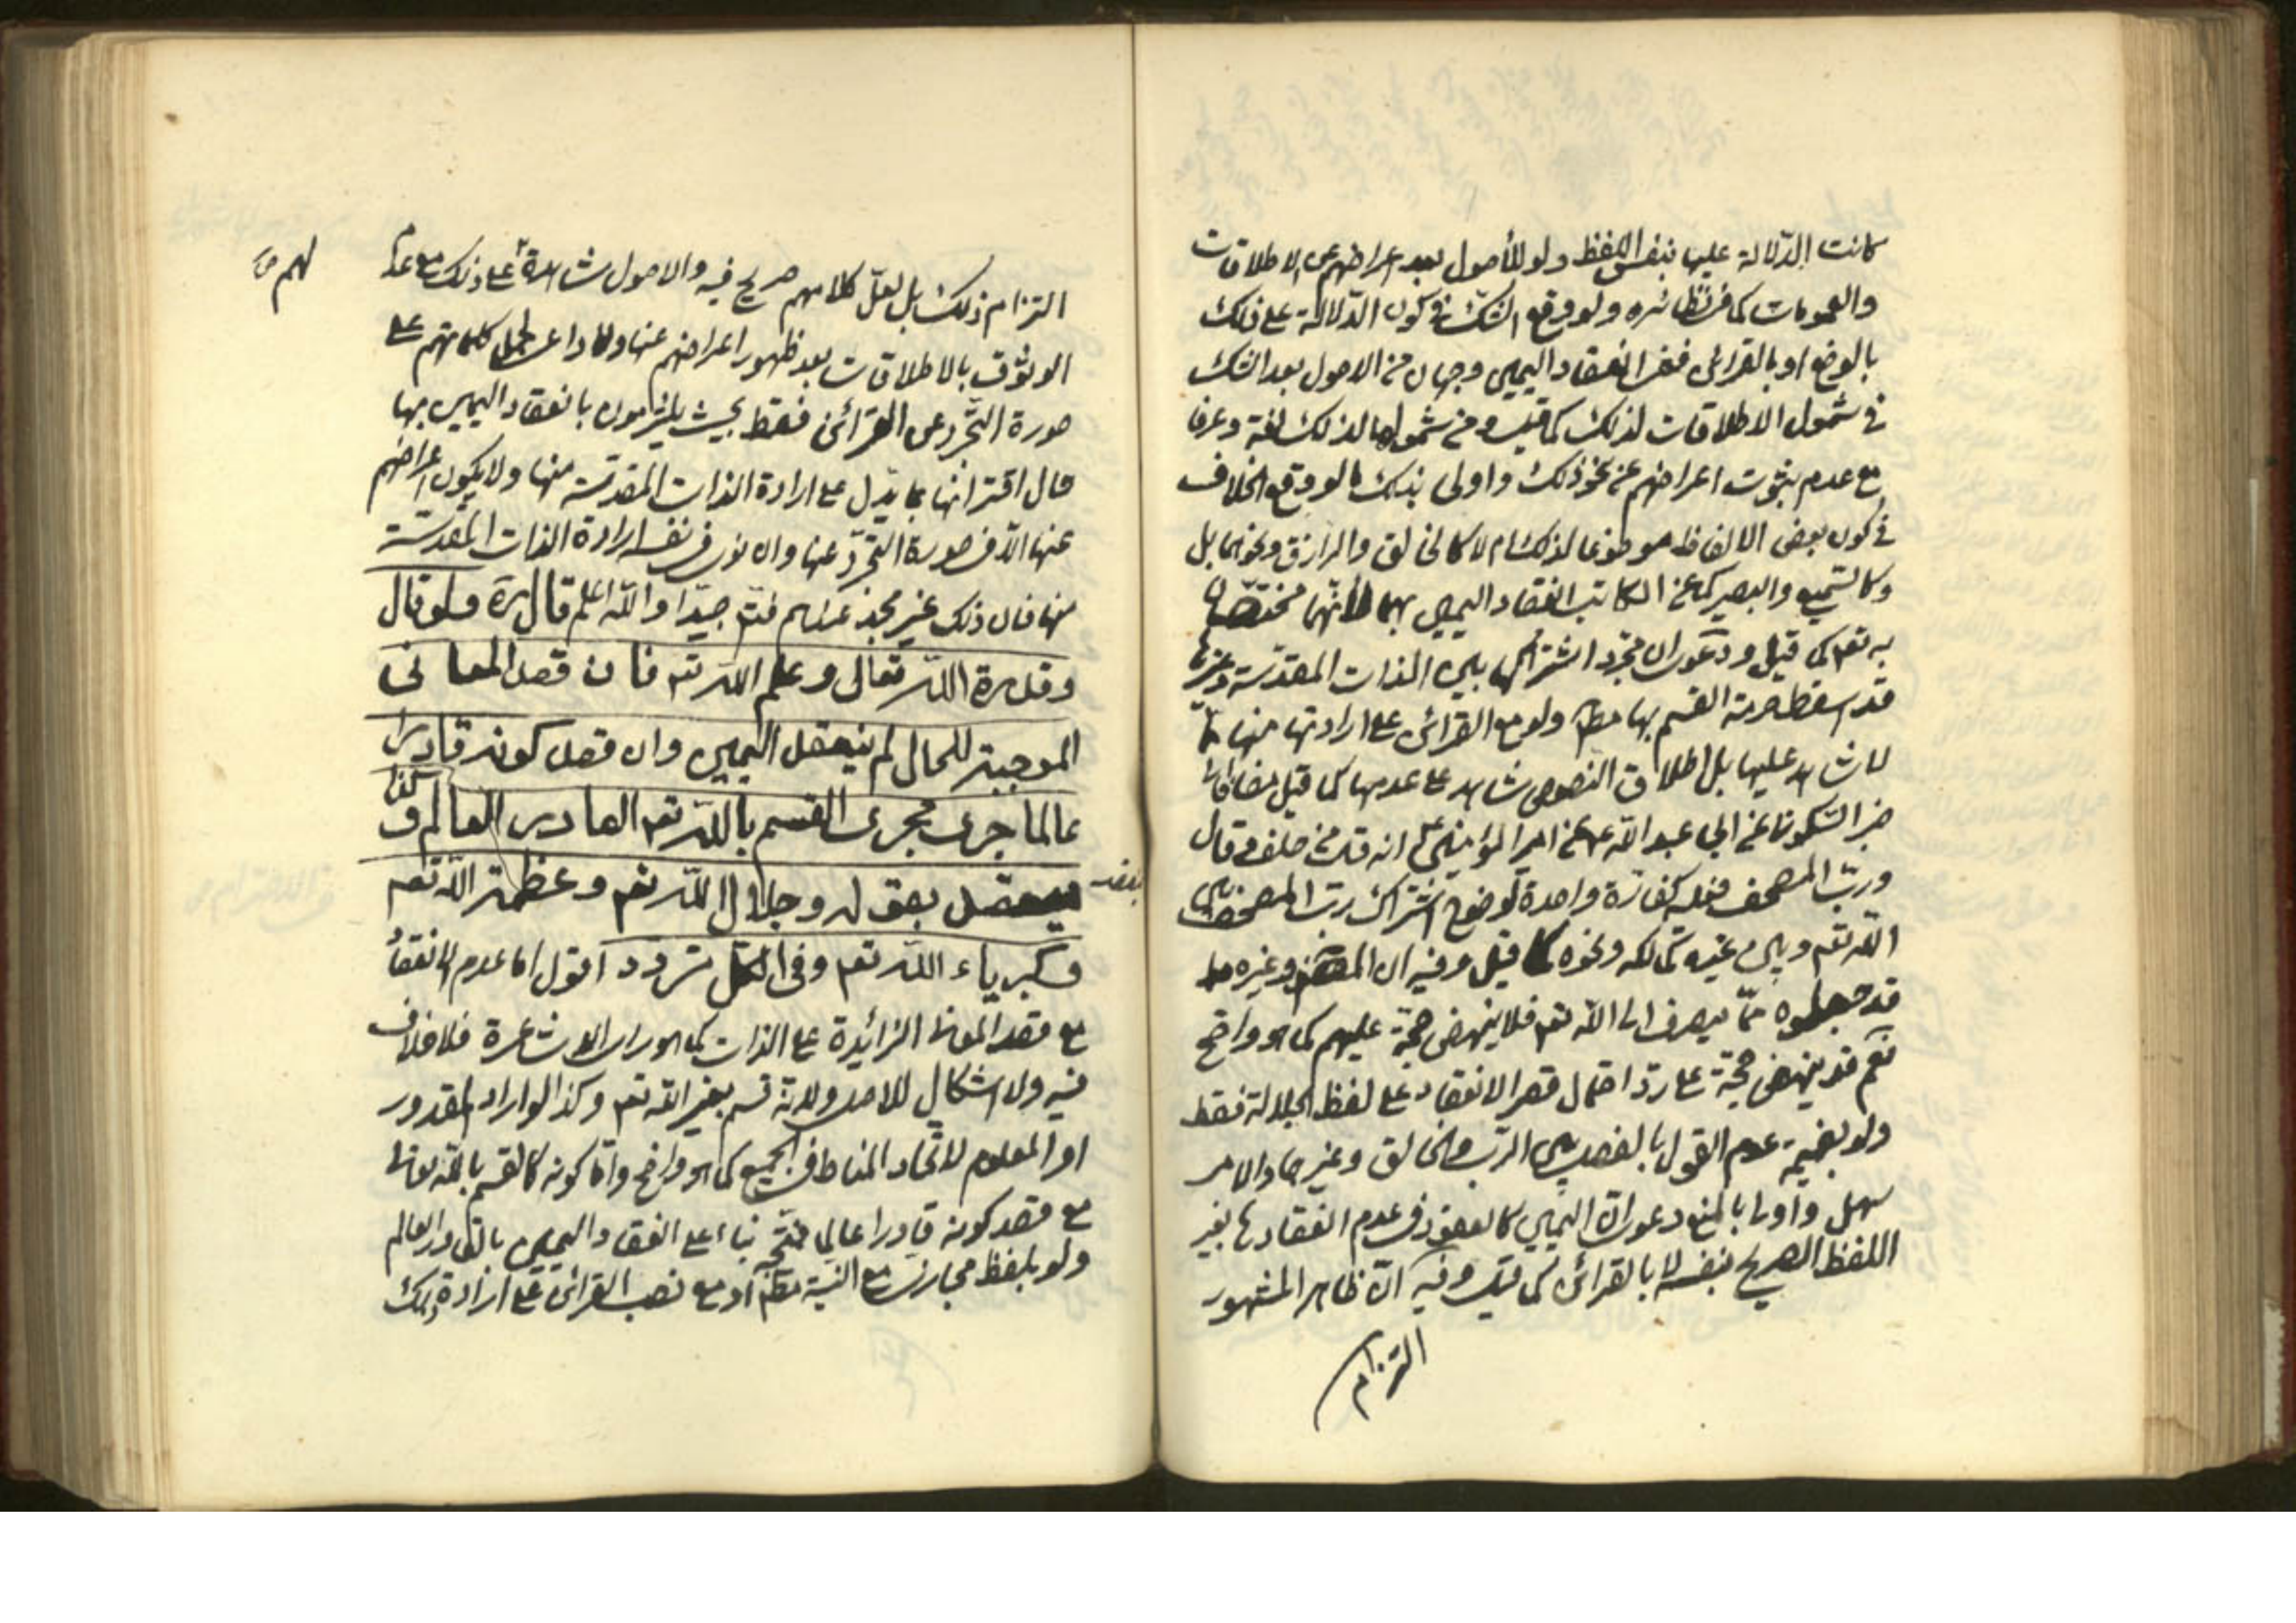 كانت الدّلالة عليها بنفس اللفظ ولو للأصول بعد اعراضهم عن الاطلاقات
والعمومات كما في نظائره ولو وقع الشكّ في كون الدّلالة على ذلك
بالوضع او بالقرائن ففي انعقاد اليمين وجهان من الاصول بعد الشك
في شمول الاطلاقات لذلك كما قيل ومن شمولها لذلك لغة وعرفا
مع عدم ثبوت اعراضهم عن نحو ذلك واولى بذلك ما لو وقع الخلاف
في كون بعض الالفاظ موضوعا لذلك ام لا كالخالق والرازق ونحوهما بل
وكالسّميع والبصير كما عن الكاتب انعقاد اليمين بهما لأنّهما مختصّان
به تعم كما قيل ودعوى ان مجرد اشتراكها بين الذات المقدّسة وغيرها
قد اسقط حرمة القسم بها مطم ولو مع القرائن على ارادتها منها ممّا
لا شاهد عليها بل اطلاق النصوص شاهد على عدمها كما قيل مضافا الى
خبر السّكوني عن ابي عبد الله ع عن امير المؤمنين ع انه قال من حلف وقال
وربّ المصحف فعليه كفّارة واحدة لوضوح اشتراك ربّ المصحف بين
الله تعم وبين غيره كمالكه ونحوه كما قيل وفيه ان المص وغيره
قد جعلوه ممّا ينصرف الى الله تعم فلا ينهض حجّة عليهم كما هو واضح
نعم قد ينهض حجّة على ردّ احتمال قصر الانعقاد على لفظ الجلالة فقط
ولو بضميمة عدم القول بالفصل بين الربّ والخالق وغيرهما والامر
سهل واولى بالمنع دعوى انّ اليمين كالعقود في عدم انعقادها بغير
اللفظ الصريح بنفسه لا بالقرائن كما قيل وفيه انّ ظاهر المشهور
التزام
التزام ذلك بل لعلّ كلامهم صريح فيه والاصول شاهدة على ذلك مع عدم
لهم
الوثوق بالاطلاقات بعد ظهور اعراضهم عنها ولا داعي لحمل كلماتهم على
صورة التجّرد عن القرائن فقط بحيث يلتزمون بانعقاد اليمين بها
حال اقترانها بما يدل على ارادة الذات المقدسة منها ولا يكون اعراضهم
عنها الّا في صورة التجرّد عنها وان نوى في نفسه ارادة الذات المقدّسة
منها فان ذلك غير مجد عندهم فتم جيّدا والله اعلم قال ره ولو قال
وقدرة الله تعالى وعلم الله تعم فان قصد المعاني
الموجبة للحال لم ينعقد اليمين وان قصد كونه قادرا
عالما جرى مجرى القسم بالله تعم القادر العالم وكذا
ينعقد بقوله وجلال الله تعم وعظمة الله تعم
وكبرياء الله تعم وفي الكل تردد اقول اما عدم الانعقاد
مع قصد المعاني الزائدة على الذات كما هو رأي الاشاعرة فلا خلاف
فيه ولا اشكال للاصل ولانه قسم بغير الله تعم وكذا لو اراد المقدور
او المعلوم لاتّحاد المناط في الجميع كما هو واضح وامّا كونه كالقسم بالله تعالى
مع قصد كونه قادرا عالما فمتّجه بناء على انعقاد اليمين بالقادر العالم
ولو بلفظ مجازي مع النية مطم او مع نصب القرائن على ارادة ذلك